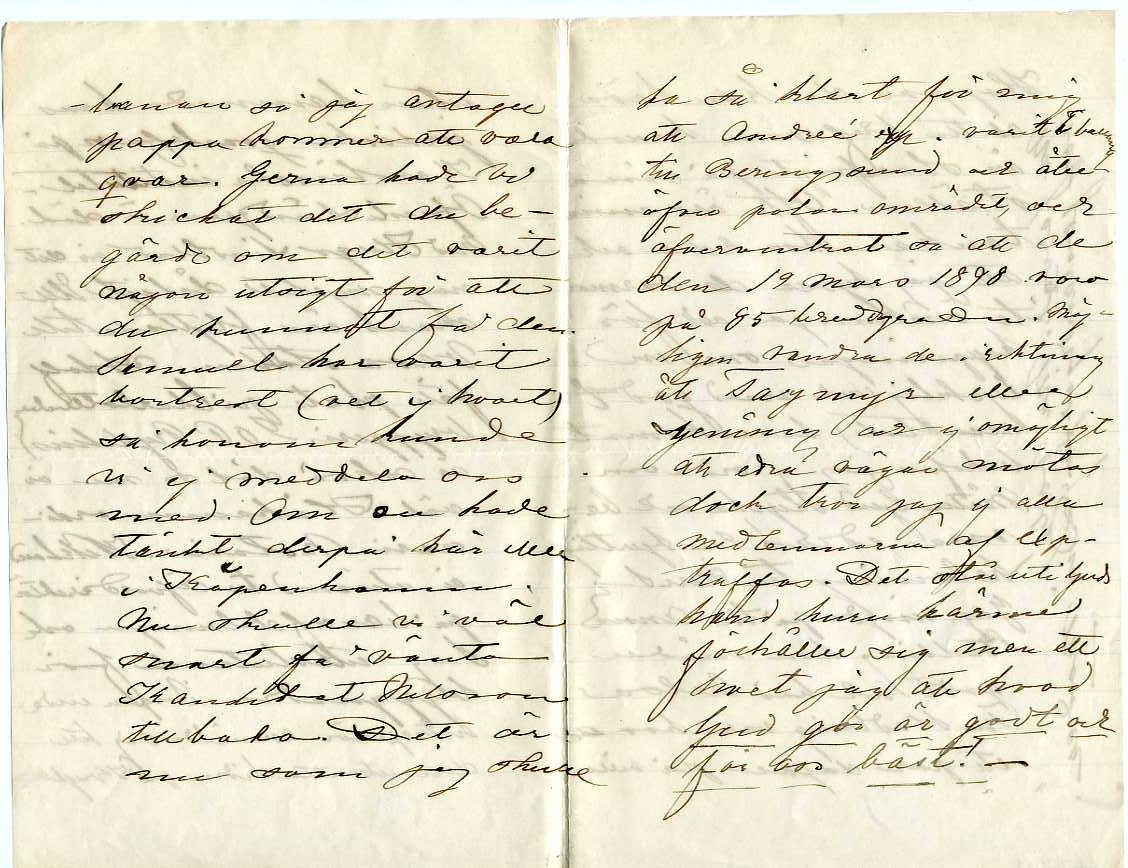 - kanan så jag antager
pappa kommer att vara
qvar. Gerna hade vi
skickat det du be-
gärde om det varit
någon utsigt för att
du kunnat få den.
har varit
bortrest (vet ej hvart)
så honom kunde
vi ej meddela oss
med. Om du hade
tänkt derpå här eller
i Köpenhamn.
Nu skulle vi väl
snart få vänta
Kandidat Nilsson
tillbaka. Det är
nu som jag skulle
ha så klart för mig
att Andreé exp. varit i
till Berings sund och åter
öfver polar området, och
öfvervintrat så att de
den 19 mars 1898 voro
på 85 breddgraden. Möj-
ligen vandra de i riktning
åt Taymyr eller
Jenisey och ej omöjligt
att edra vägar mötas
dock tror jag ej alla
medlemmarna af exp-
träffas. Det står uti Guds
hand huru härmed
förhåller sig men ett
vet jag att hvad
Gud gör är godt och
för oss bäst! -